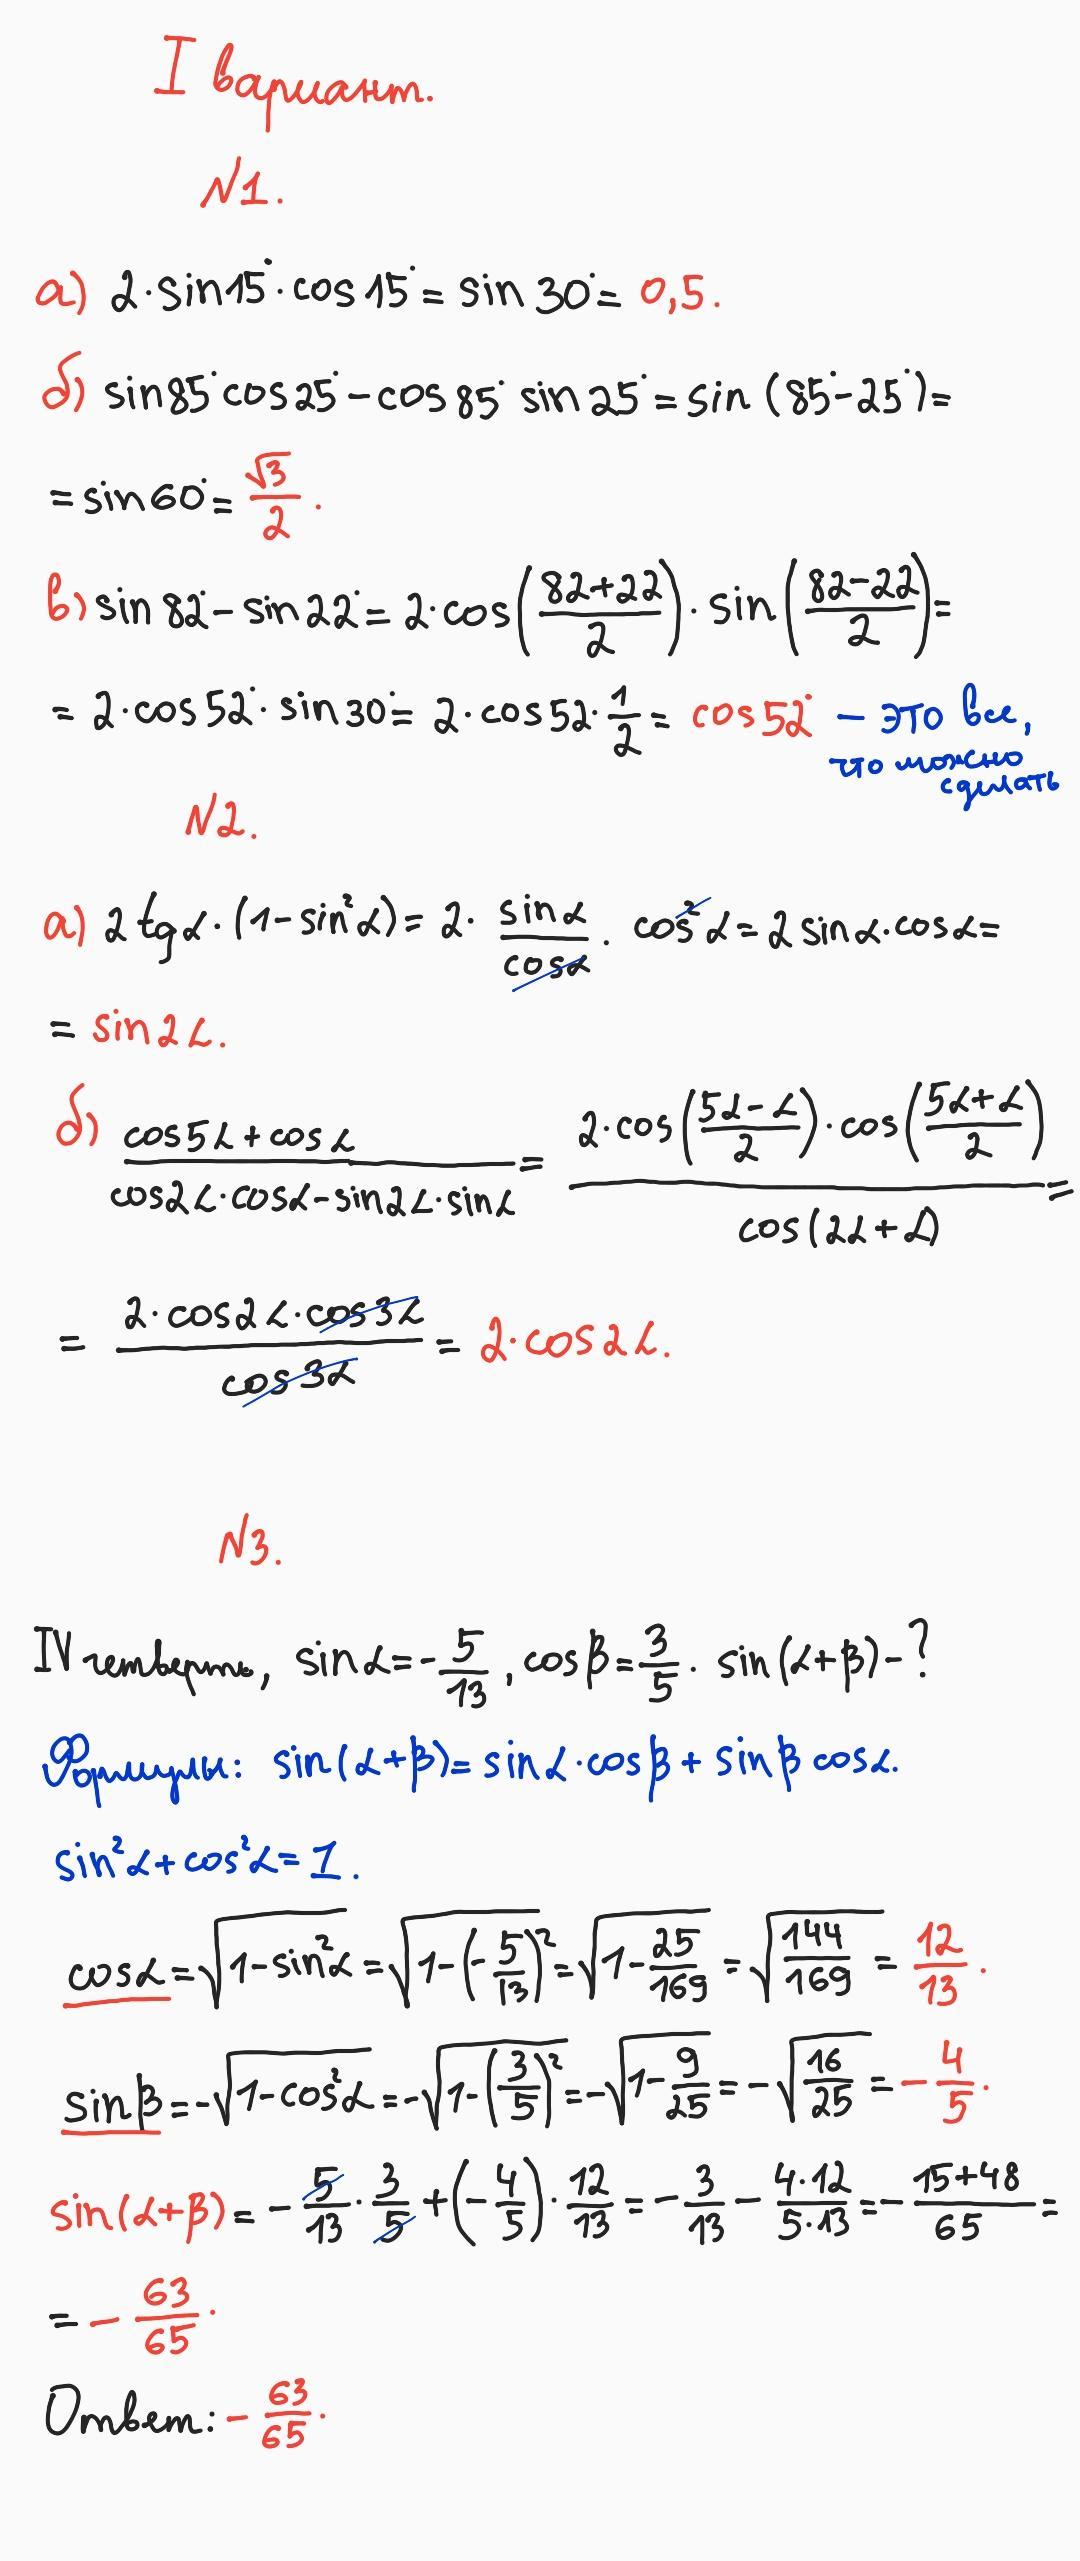 I вариант.
N1.
а) 2·sin15°·cos15°= sin30°= 0,5.
б) sin85°cos25°-cos85° sin25°= sin(85°-25°)=
= sin60°= √3/2.
в) sin82°-sin22°= 2·cos((82+22)/2)·sin((82-22)/2)=
= 2·cos52°·sin30°= 2·cos52·1/2= cos52° - это все,
что можно
сделать
N2.
а) 2tgα·(1-sin²α)= 2·sinα/cosα·cos²α=2sinα·cosα=
= sin2α.
б) (cos5α+cosα)/(cos2α·cosα-sin2α·sinα)= (2·cos((5α-α)/2)·cos((5α+α)/2))/cos(2α+α)=
= (2·cos2α·cos3α)/cos3α = 2·cos2α.
N3.
IV четверть, sinα=-5/13, cosβ=3/5. sin(α+β)-?
Формулы: sin(α+β)=sinα·cosβ+sinβ cosα.
sin²α+cos²α=1.
cosα=√(1-sin²α)=√(1-(-5/13)²)=√(1-25/169)=√(144/169)=12/13.
sinβ=-√(1-cos²α)=-√(1-(3/5)²)=-√(1-9/25)=-√(16/25)=-4/5.
sin(α+β)=-5/13·3/5+(-4/5)·12/13=-3/13-(4·12)/(5·13)=-(15+48)/65=
=-63/65.
Ответ: -63/65.